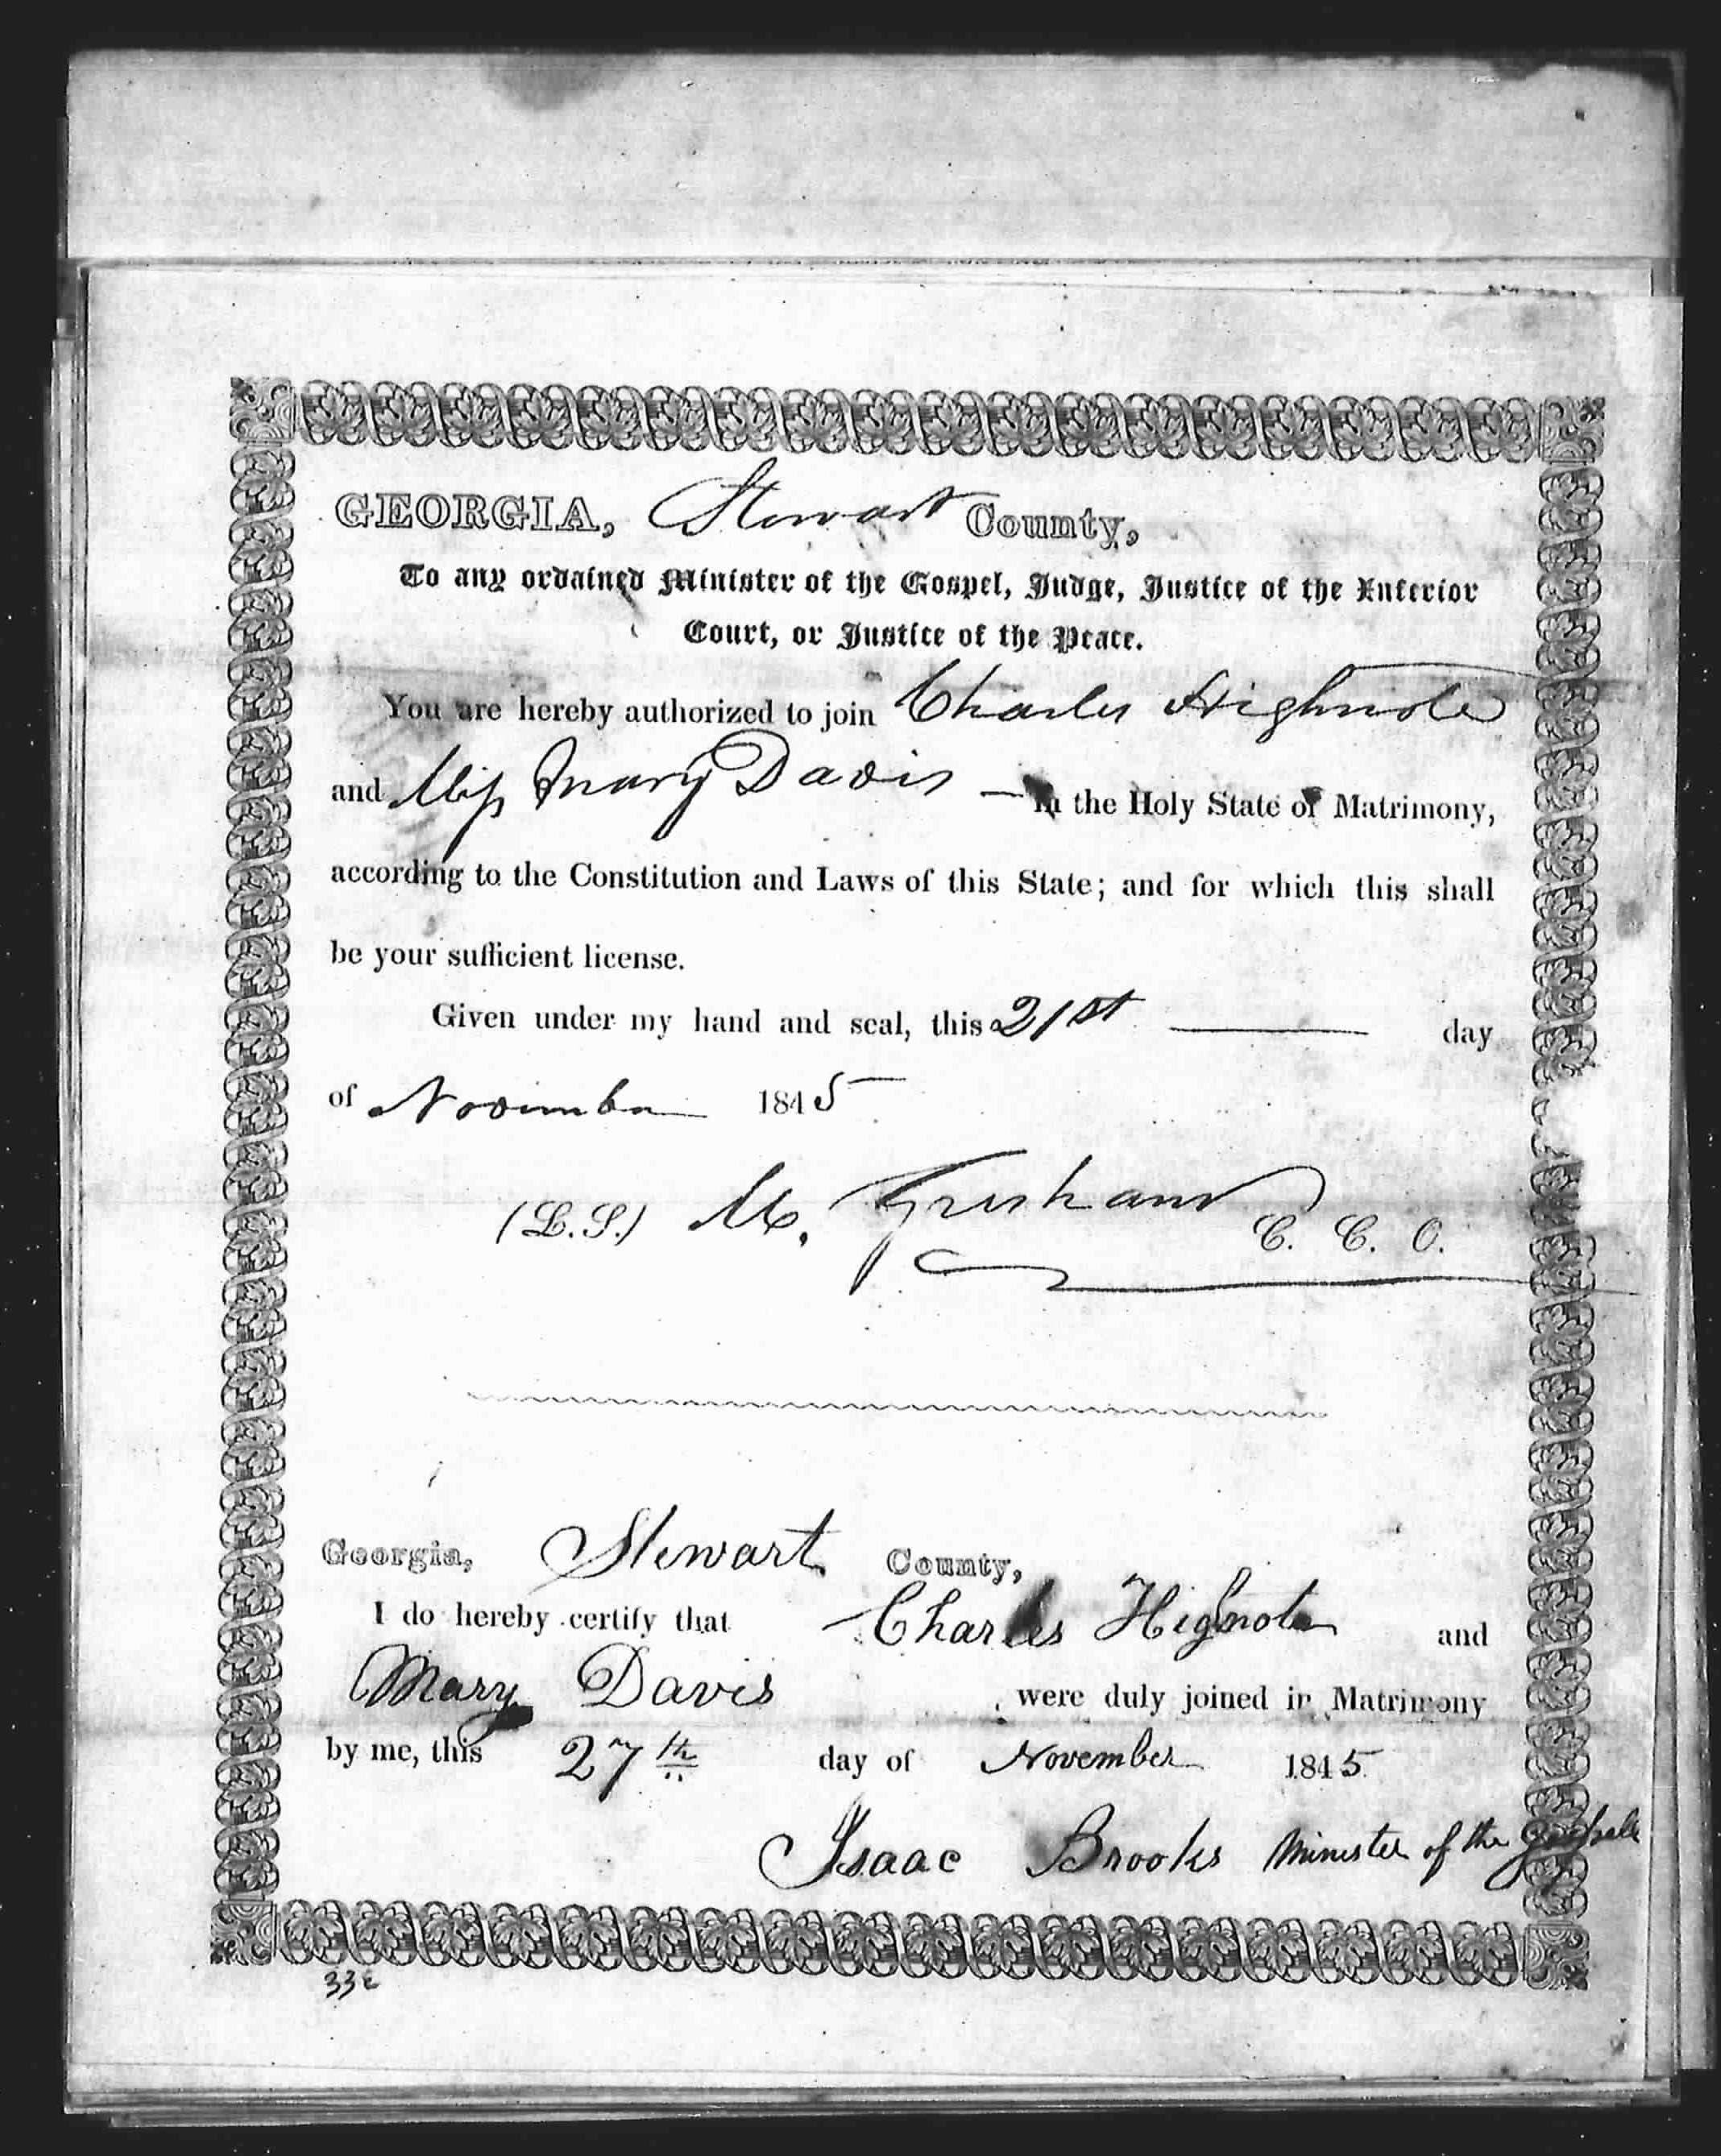 GEORGIA, Stewart County,
To any ordained Minister of the Gospel, Judge, Justice of the Inferior
Court, or Justice of the Peace.
You are hereby authorized to join Charles Highnote
and Miss Mary Davis — in the Holy State of Matrimony,
according to the Constitution and Laws of this State; and for which this shall
be your sufficient license.
Given under my hand and seal, this 21st —— day
of November 1845
(L.S.) M. Gresham C. C. O.
Georgia, Stewart County,
I do hereby certify that Charles Hignote and
Mary Davis were duly joined in Matrimony
by me, this 27th day of November 1845
Isaac Brooks Minister of the